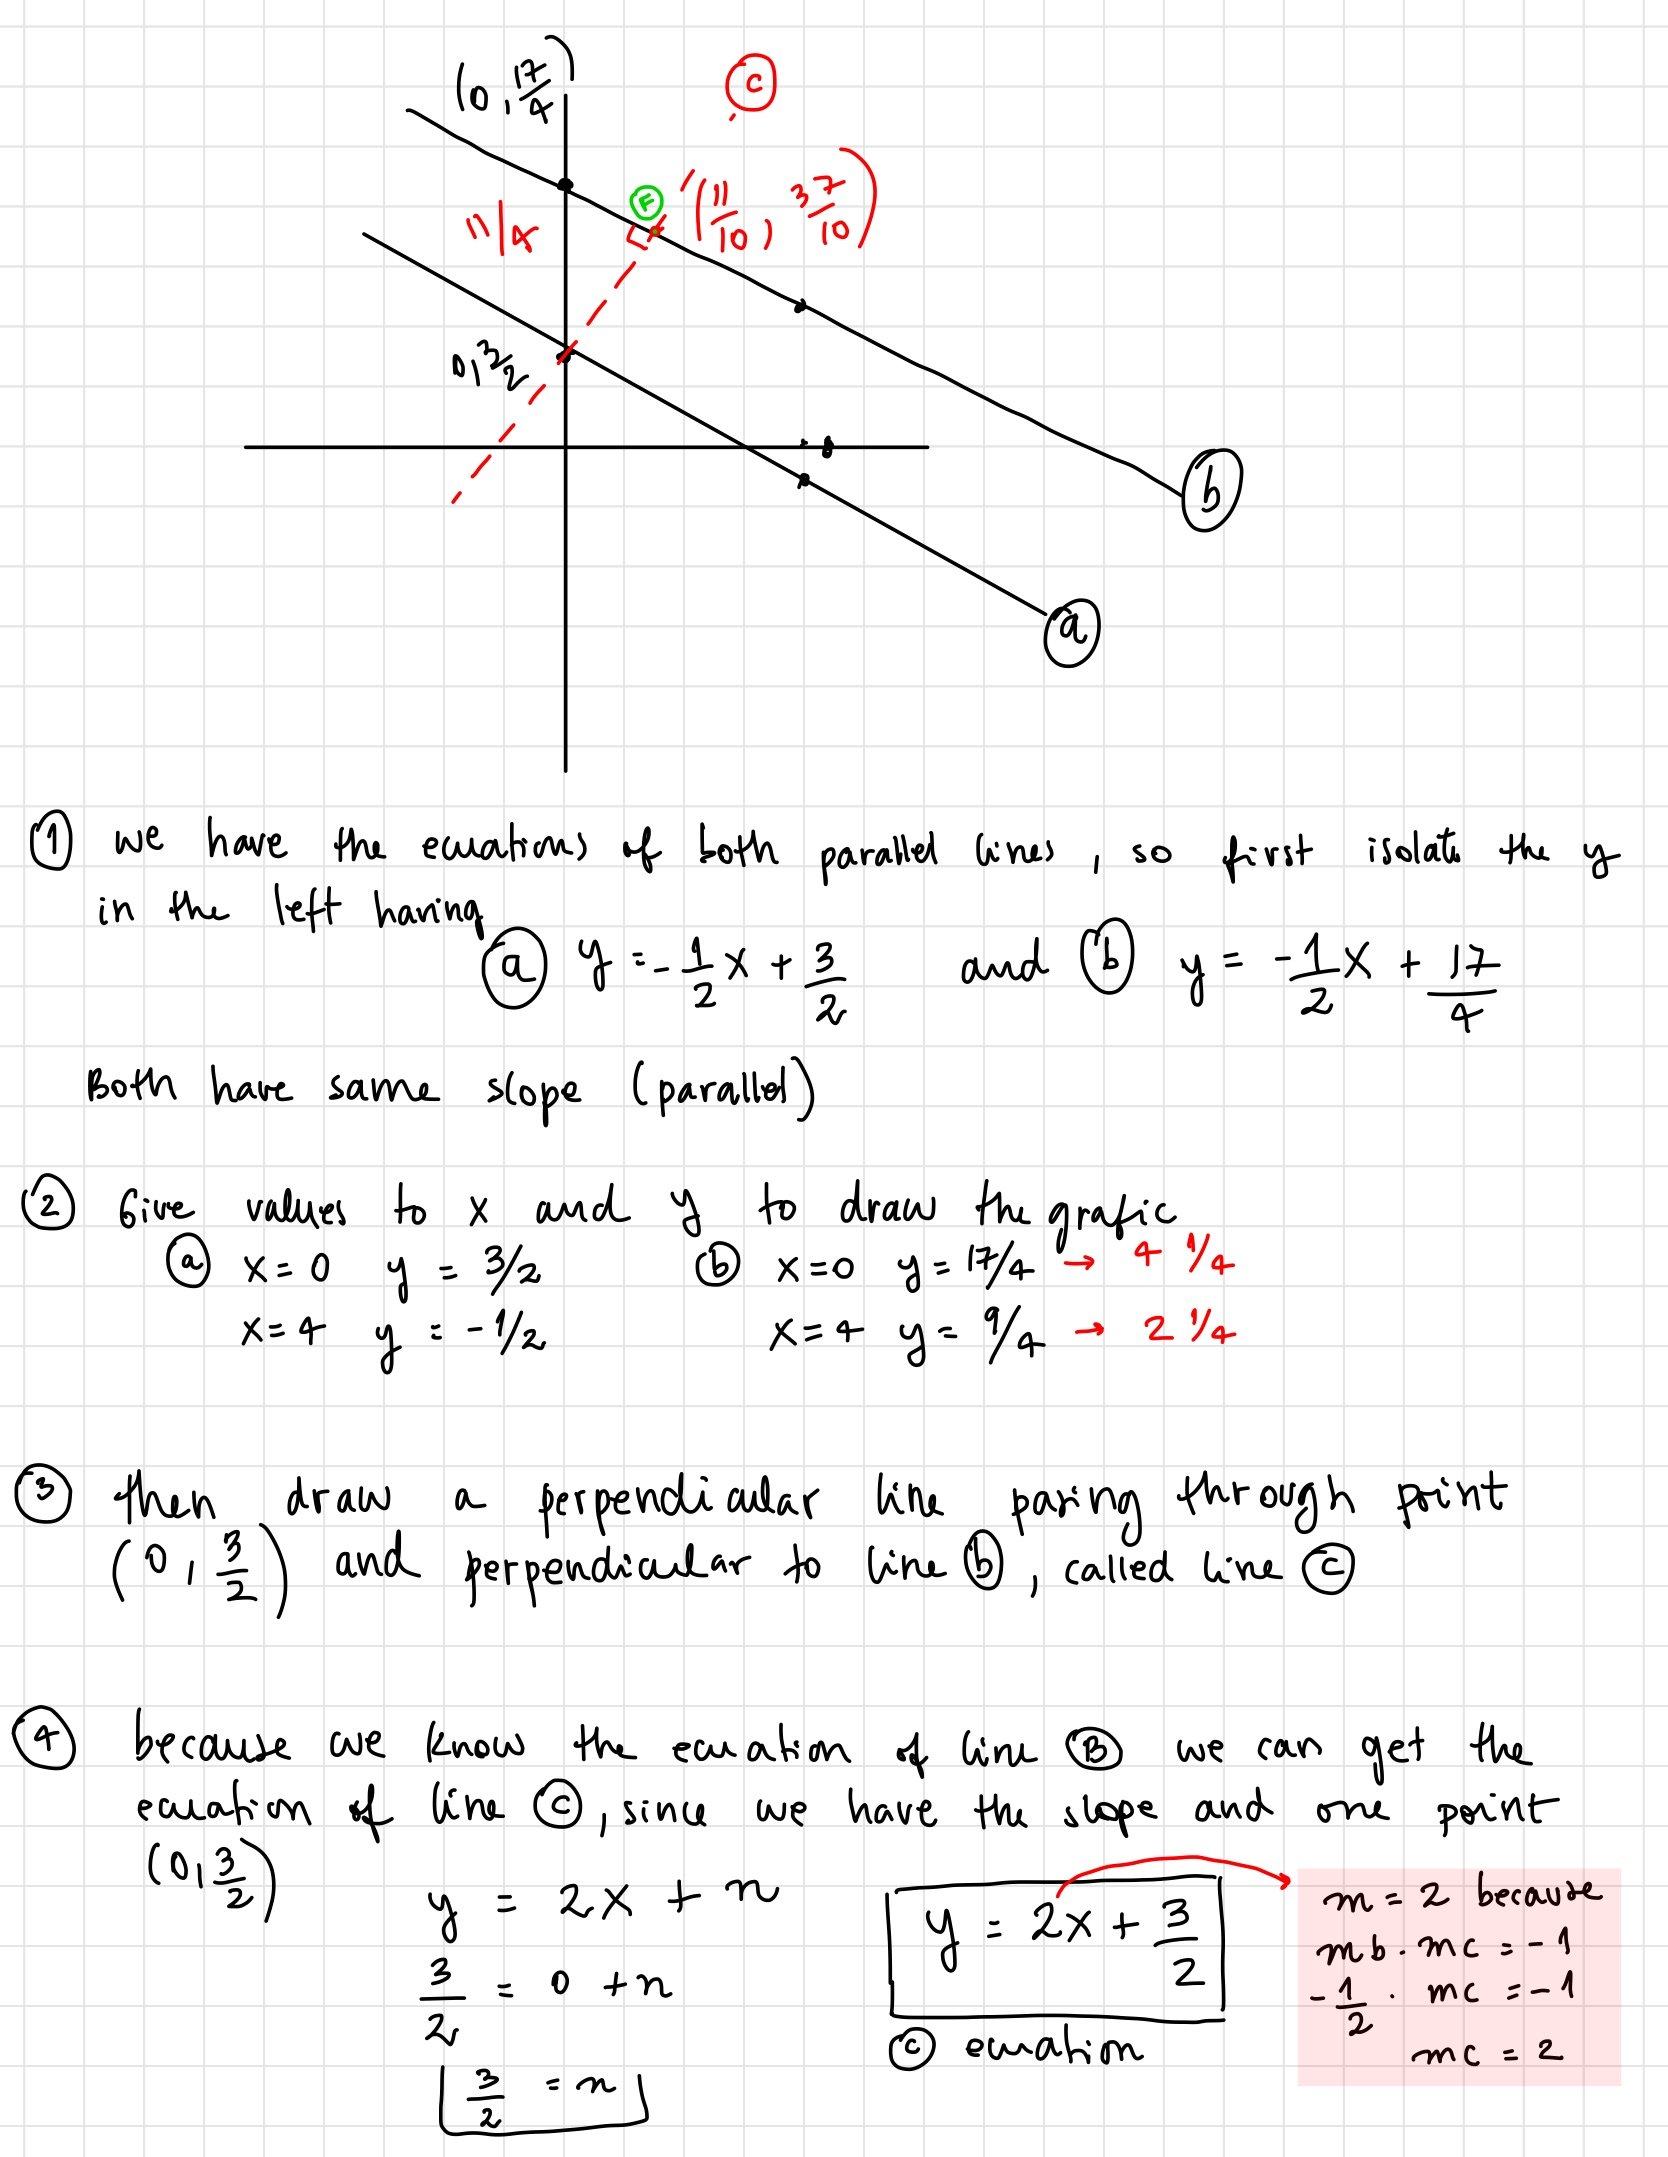 (0, 17/4)
C
F
(11/10, 37/10)
11/4
0, 3/2
b
a
① we have the ecuations of both parallel lines, so first isolate the y
in the left having
ⓐ y = -1/2 x + 3/2 and ⓑ y = -1/2 x + 17/4
Both have same slope (parallel)
② Give values to x and y to draw the grafic
ⓐ x = 0 y = 3/2 ⓑ x = 0 y = 17/4 → 4 1/4
x = 4 y = -1/2 x = 4 y = 9/4 → 2 1/4
③ then draw a perpendicular line pasing through point
(0, 3/2) and perpendicular to line ⓑ, called line ⓒ
④ because we know the ecuation of line Ⓑ we can get the
ecuation of line ⓒ, since we have the slope and one point
(0, 3/2)
y = 2x + n
3/2 = 0 + n
3/2 = n
y = 2x + 3/2
ⓒ ecuation
m = 2 because
mb · mc = -1
-1/2 · mc = -1
mc = 2